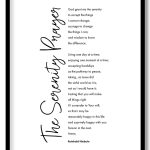 The Serenity Prayer
God grant me the serenity
to accept the things
I cannot change;
courage to change
the things I can;
and wisdom to know
the difference.
Living one day at a time;
enjoying one moment at a time;
accepting hardships
as the pathway to peace;
taking, as
this sinful world
as it is, not as I would have it;
trusting that you will make
all things right
if I surrender to Your will;
so that I may be
reasonably happy in this life
and supremely happy with you
forever in the next.
Amen.
Reinhold Niebuhr